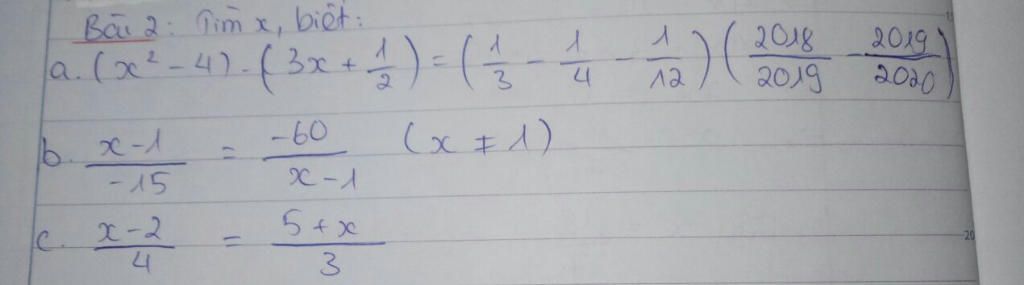 Bài 2: Tìm x, biết:
a. (x² - 4) . (3x + 1/2) = (1/3 - 1/4 - 1/12) (2018/2019 - 2019/2020)
b. x-1/-15 = -60/x-1 (x ≠ 1)
c. x-2/4 = 5+x/3
20